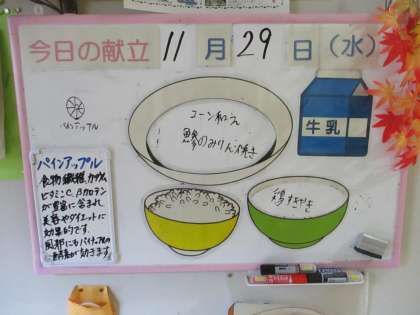 今日の献立 11月29日(水)
パインアップル
コーン和え
鰺のみりん焼き
牛乳
鶏すきやき
パインアップル
食物繊維、カリウム、
ビタミンC、βカロテン
が豊富に含まれ
美容やダイエットに
効果的です。
風邪にもパイナップルの
酵素が効きます。